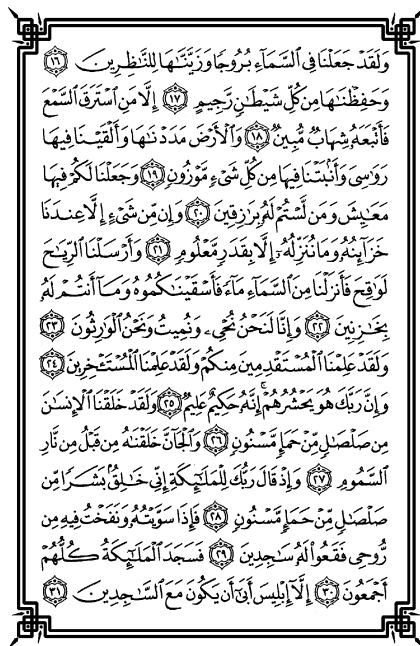 وَلَقَدۡ جَعَلۡنَا فِي ٱلسَّمَآءِ بُرُوجٗا وَزَيَّنَّٰهَا لِلنَّٰظِرِينَ ١٦
وَحَفِظۡنَٰهَا مِن كُلِّ شَيۡطَٰنٖ رَّجِيمٍ ١٧ إِلَّا مَنِ ٱسۡتَرَقَ ٱلسَّمۡعَ
فَأَتۡبَعَهُۥ شِهَابٞ مُّبِينٞ ١٨ وَٱلۡأَرۡضَ مَدَدۡنَٰهَا وَأَلۡقَيۡنَا فِيهَا
رَوَٰسِيَ وَأَنۢبَتۡنَا فِيهَا مِن كُلِّ شَيۡءٖ مَّوۡزُونٖ ١٩ وَجَعَلۡنَا لَكُمۡ فِيهَا
مَعَٰيِشَ وَمَن لَّسۡتُمۡ لَهُۥ بِرَٰزِقِينَ ٢٠ وَإِن مِّن شَيۡءٍ إِلَّا عِندَنَا
خَزَآئِنُهُۥ وَمَا نُنَزِّلُهُۥٓ إِلَّا بِقَدَرٖ مَّعۡلُومٖ ٢١ وَأَرۡسَلۡنَا ٱلرِّيَٰحَ
لَوَٰقِحَ فَأَنزَلۡنَا مِنَ ٱلسَّمَآءِ مَآءٗ فَأَسۡقَيۡنَٰكُمُوهُ وَمَآ أَنتُمۡ لَهُۥ
بِخَٰزِنِينَ ٢٢ وَإِنَّا لَنَحۡنُ نُحۡيِۦ وَنُمِيتُ وَنَحۡنُ ٱلۡوَٰرِثُونَ ٢٣
وَلَقَدۡ عَلِمۡنَا ٱلۡمُسۡتَقۡدِمِينَ مِنكُمۡ وَلَقَدۡ عَلِمۡنَا ٱلۡمُسۡتَـٔۡخِرِينَ ٢٤
وَإِنَّ رَبَّكَ هُوَ يَحۡشُرُهُمۡۚ إِنَّهُۥ حَكِيمٌ عَلِيمٞ ٢٥ وَلَقَدۡ خَلَقۡنَا ٱلۡإِنسَٰنَ
مِن صَلۡصَٰلٖ مِّنۡ حَمَإٖ مَّسۡنُونٖ ٢٦ وَٱلۡجَآنَّ خَلَقۡنَٰهُ مِن قَبۡلُ مِن نَّارِ
ٱلسَّمُومِ ٢٧ وَإِذۡ قَالَ رَبُّكَ لِلۡمَلَٰٓئِكَةِ إِنِّي خَٰلِقُۢ بَشَرٗا مِّن
صَلۡصَٰلٖ مِّنۡ حَمَإٖ مَّسۡنُونٖ ٢٨ فَإِذَا سَوَّيۡتُهُۥ وَنَفَخۡتُ فِيهِ مِن
رُّوحِي فَقَعُواْ لَهُۥ سَٰجِدِينَ ٢٩ فَسَجَدَ ٱلۡمَلَٰٓئِكَةُ كُلُّهُمۡ
أَجۡمَعُونَ ٣٠ إِلَّآ إِبۡلِيسَ أَبَىٰٓ أَن يَكُونَ مَعَ ٱلسَّٰجِدِينَ ٣١